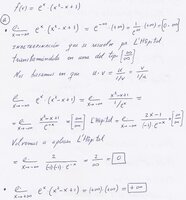 f(x) = eˣ (x²-x+1)
a
lim x→-∞ eˣ (x²-x+1) = e^-∞ · (+∞) = 1/e^∞ (+∞) = [0·∞]
indeterminación que se resuelve por L'Hôpital
transformándola en una del tipo [∞/∞]
Nos basamos en que u·v = u/(1/v) = v/(1/u)
lim x→-∞ eˣ (x²-x+1) = lim x→-∞ (x²-x+1)/(1/eˣ) =
= lim x→-∞ (x²-x+1)/(e^-x) = [∞/∞] L'Hôpital = lim x→-∞ (2x-1)/((-1)·e^-x) = [∞/∞]
Volvemos a aplicar L'Hôpital
lim x→-∞ 2/((-1)(-1)·e^-x) = 2/∞ = 0
• lim x→+∞ eˣ (x²-x+1) = (+∞)·(+∞) = +∞